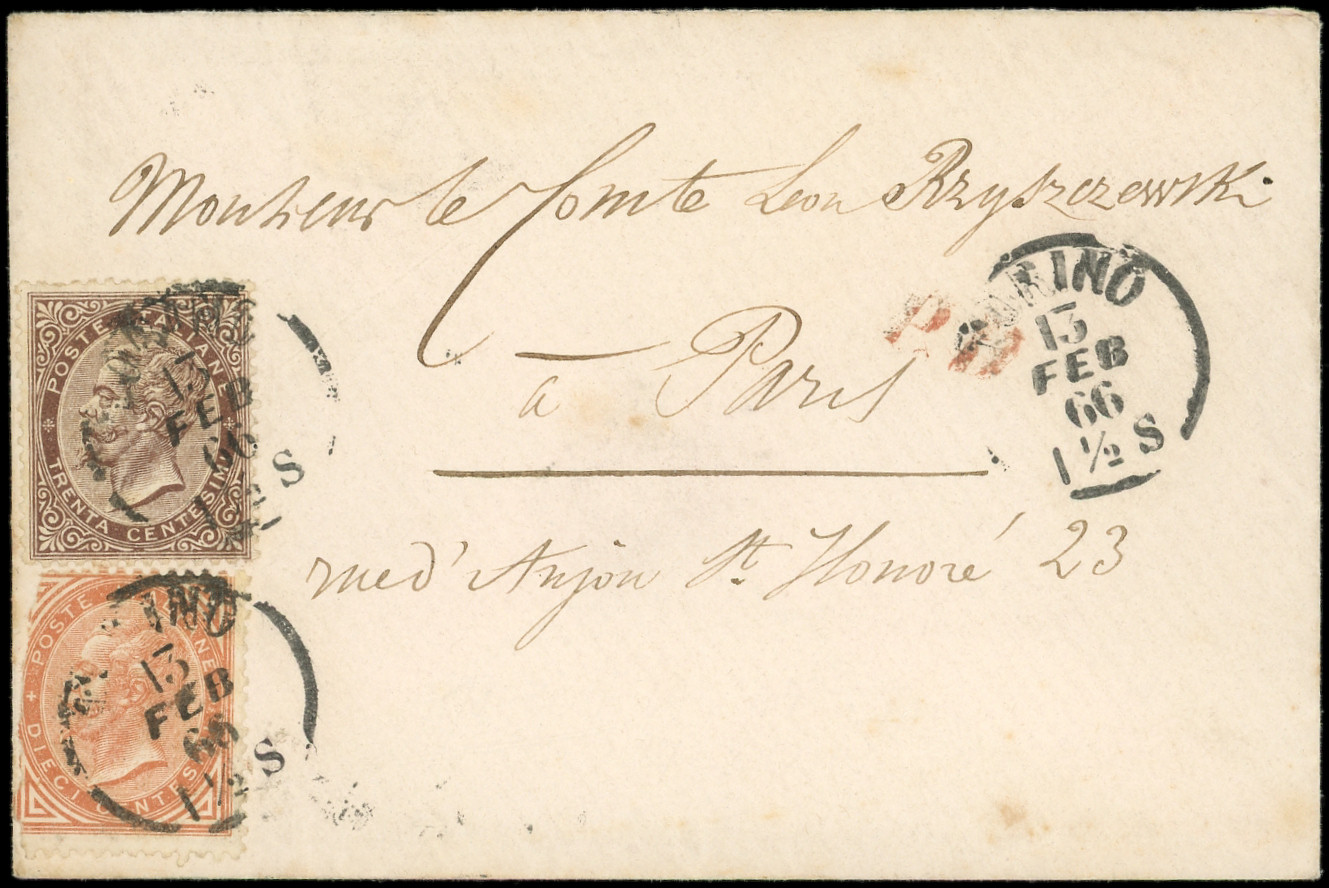 Monsieur le Comte Leon Rzyszczewski
à Paris
rue d'Anjou St Honoré 23
P.D.
TORINO
13
FEB
66
1 ½ S
POSTE ITALIANE
TRENTA CENTESIMI
TORINO
13
FEB
66
1 ½ S
POSTE ITALIANE
DIECI CENTESIMI
TORINO
13
FEB
66
1 ½ S